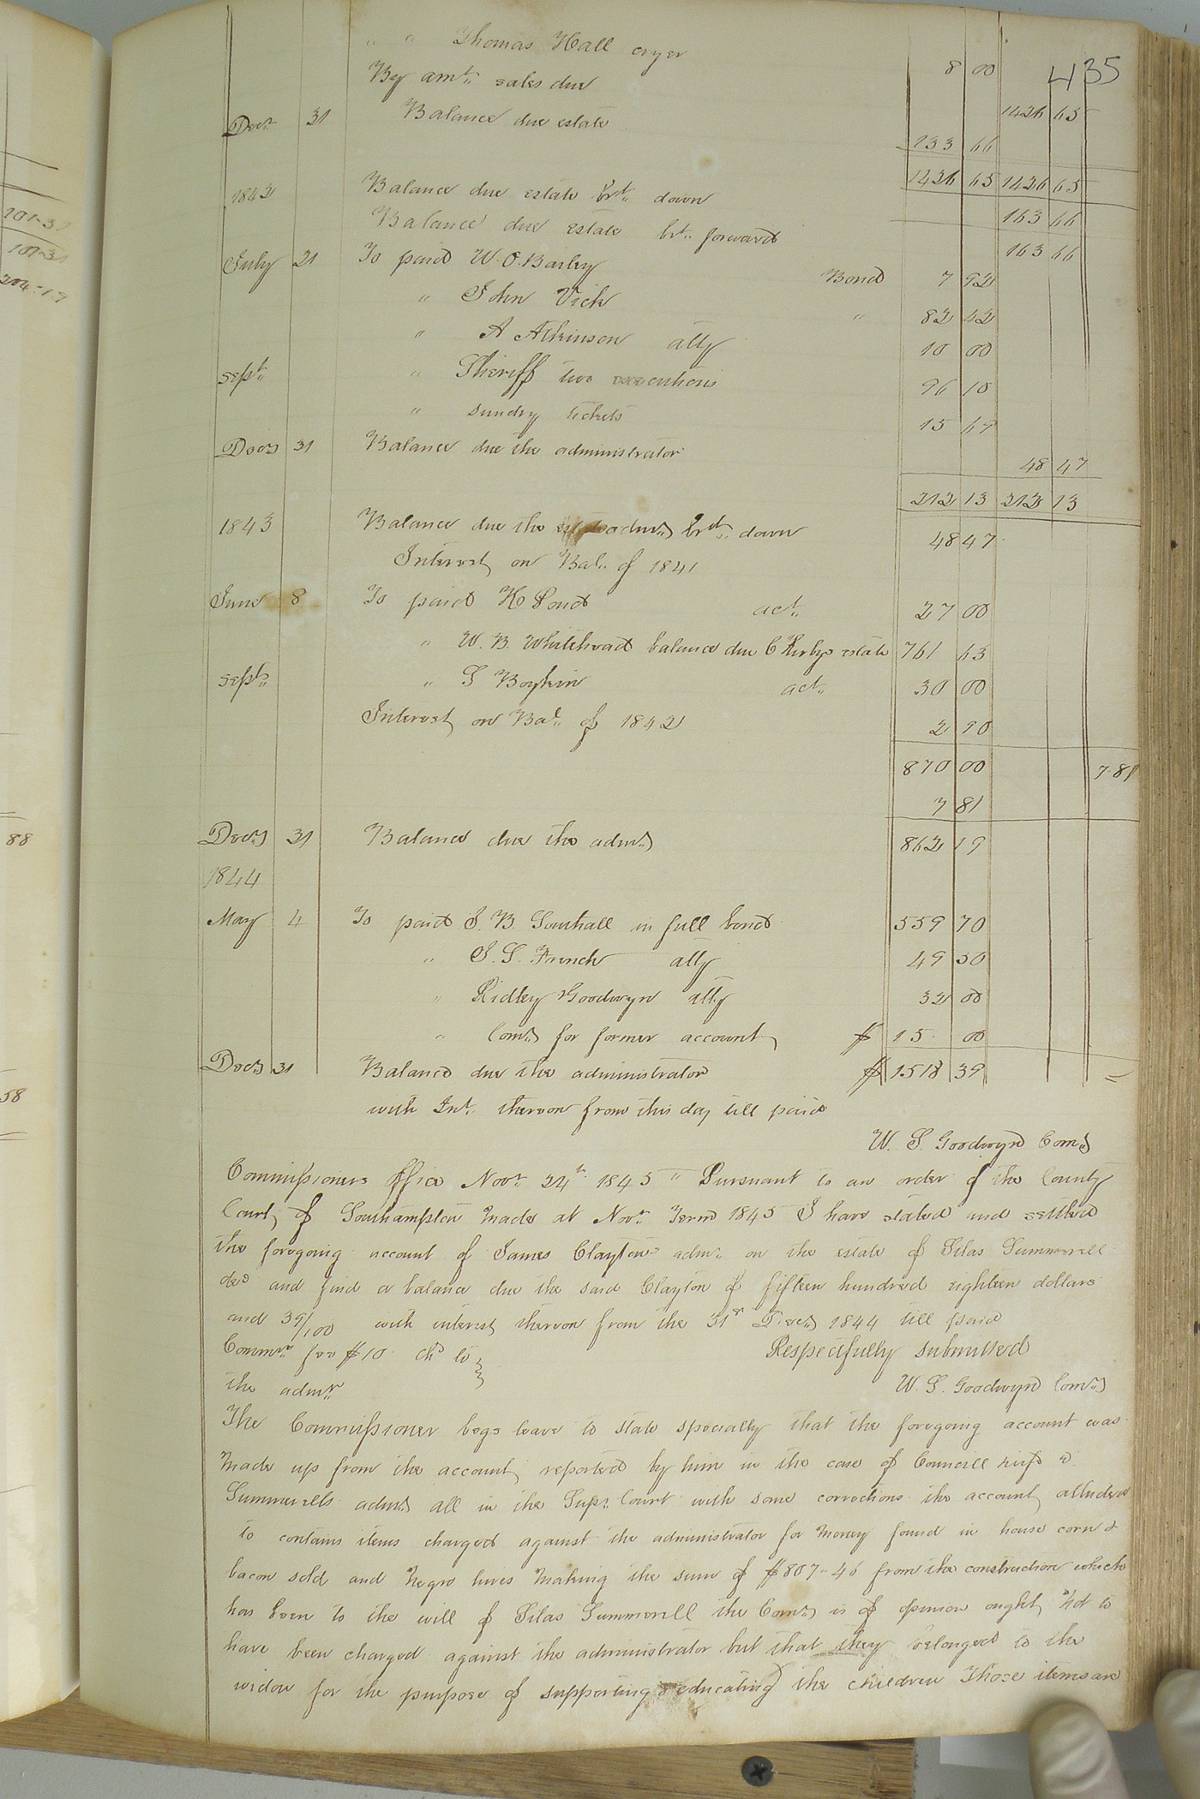 435
" " Thomas Hall cryer 8 00
By amt. sales due 1426 65
Decr. 31 Balance due estate 133 66
1426 65 1426 65
1842 Balance due estate brt. down 163 66
Balance due estate brt. forward 163 66
July 21 To paid W. O. Barley Bond 7 92
" John Vick " 82 42
" A Atkinson atty 10 00
Sept. " Sheriff two executions 96 10
" sundry tickets 15 69
Decr 31 Balance due the administrator 48 47
212 13 212 13
1843 Balance due the admr. brt. down 48 47
Interest on Bal. of 1841
June 8 To paid H Pond act. 27 00
" W. B. Whitehead balance due C Kirbys estate 761 63
Sept. " S Boykin act. 30 00
Interest on Bal. of 1842 2 90
870 00 7.81
7 81
Decr 31 Balance due the admr 862 19
1844
May 4 To paid J. B Southall in full bond 559 70
" S. S. French atty 49 50
" Ridley Goodwyn atty 32 00
" Comr for former account $ 15 00
Decr 31 Balance due the administrator $ 1518 39
with Int. thereon from this day till paid
W. S. Goodwyn Comr
Commissioners office Novr. 24th 1845 " Pursuant to an order of the County
Court of Southampton made at Novr. Term 1845 I have stated and settled
the foregoing account of James Clayton admr. on the estate of Silas Summerell
decd and find a balance due the said Clayton of fifteen hundred eighteen dollars
and 39/100 with interest thereon from the 31st Decr 1844 till paid
Commr. fee $10 chd to Respectfully submitted
the admr. W. S. Goodwyn Comr
The Commissioner begs leave to state specially that the foregoing account was
made up from the account reported by him in the case of Councill wife &
Summerells admr all in the Supr. Court with some corrections the account alluded
to contains items charged against the administrator for money found in house corn &
bacon sold and Negro hires making the sum of $807-46 from the construction which
has been to the will of Silas Summerell the Comr is of opinion ought Not to
have been charged against the administrator but that they belonged to the
widow for the purpose of supporting & educating the children Those items are
88
58